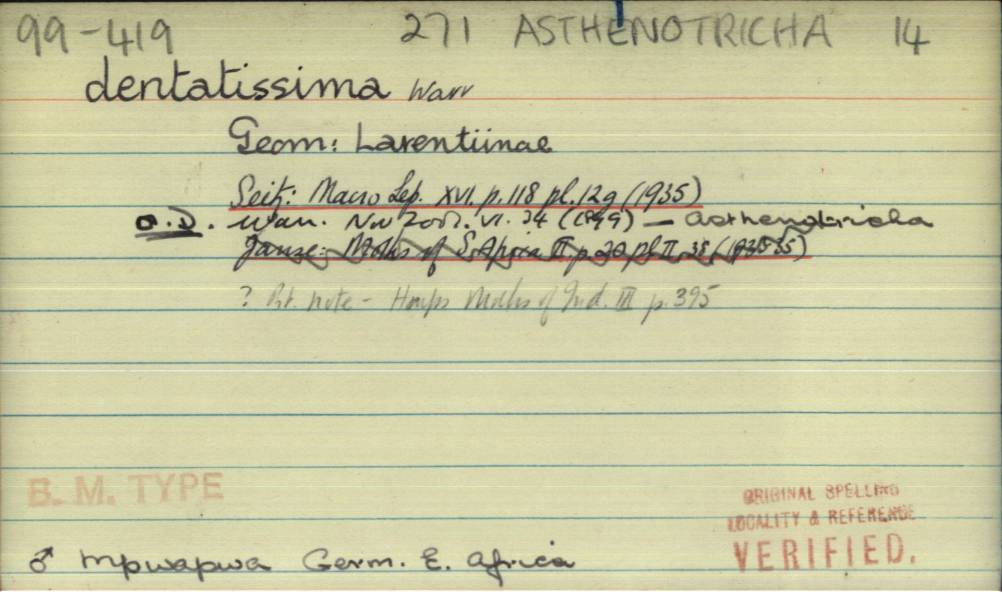 99-419 271 ASTHENOTRICHA 14
dentatissima Warr
Geom: Larentiinae
Seitz: Macro Lep. XVI. p.118 pl.12g (1935)
O.D. Warr. Nov Zool. VI. 34 (1899) — Asthenotricha
Janse: Moths of S. Africa II p 20 pl II. 35
? Prt. note - Hamps Moths of Ind. III p.395
B. M. TYPE
ORIGINAL SPELLING
LOCALITY & REFERENCE
VERIFIED.
♂ Mpwapwa Germ. E. Africa